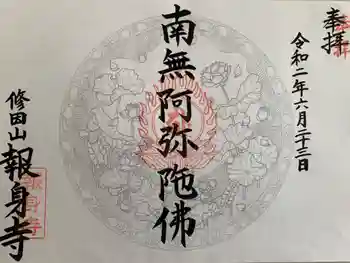 奉拝
令和二年六月二十三日
南無阿弥陀佛
修田山
報身寺
報身寺